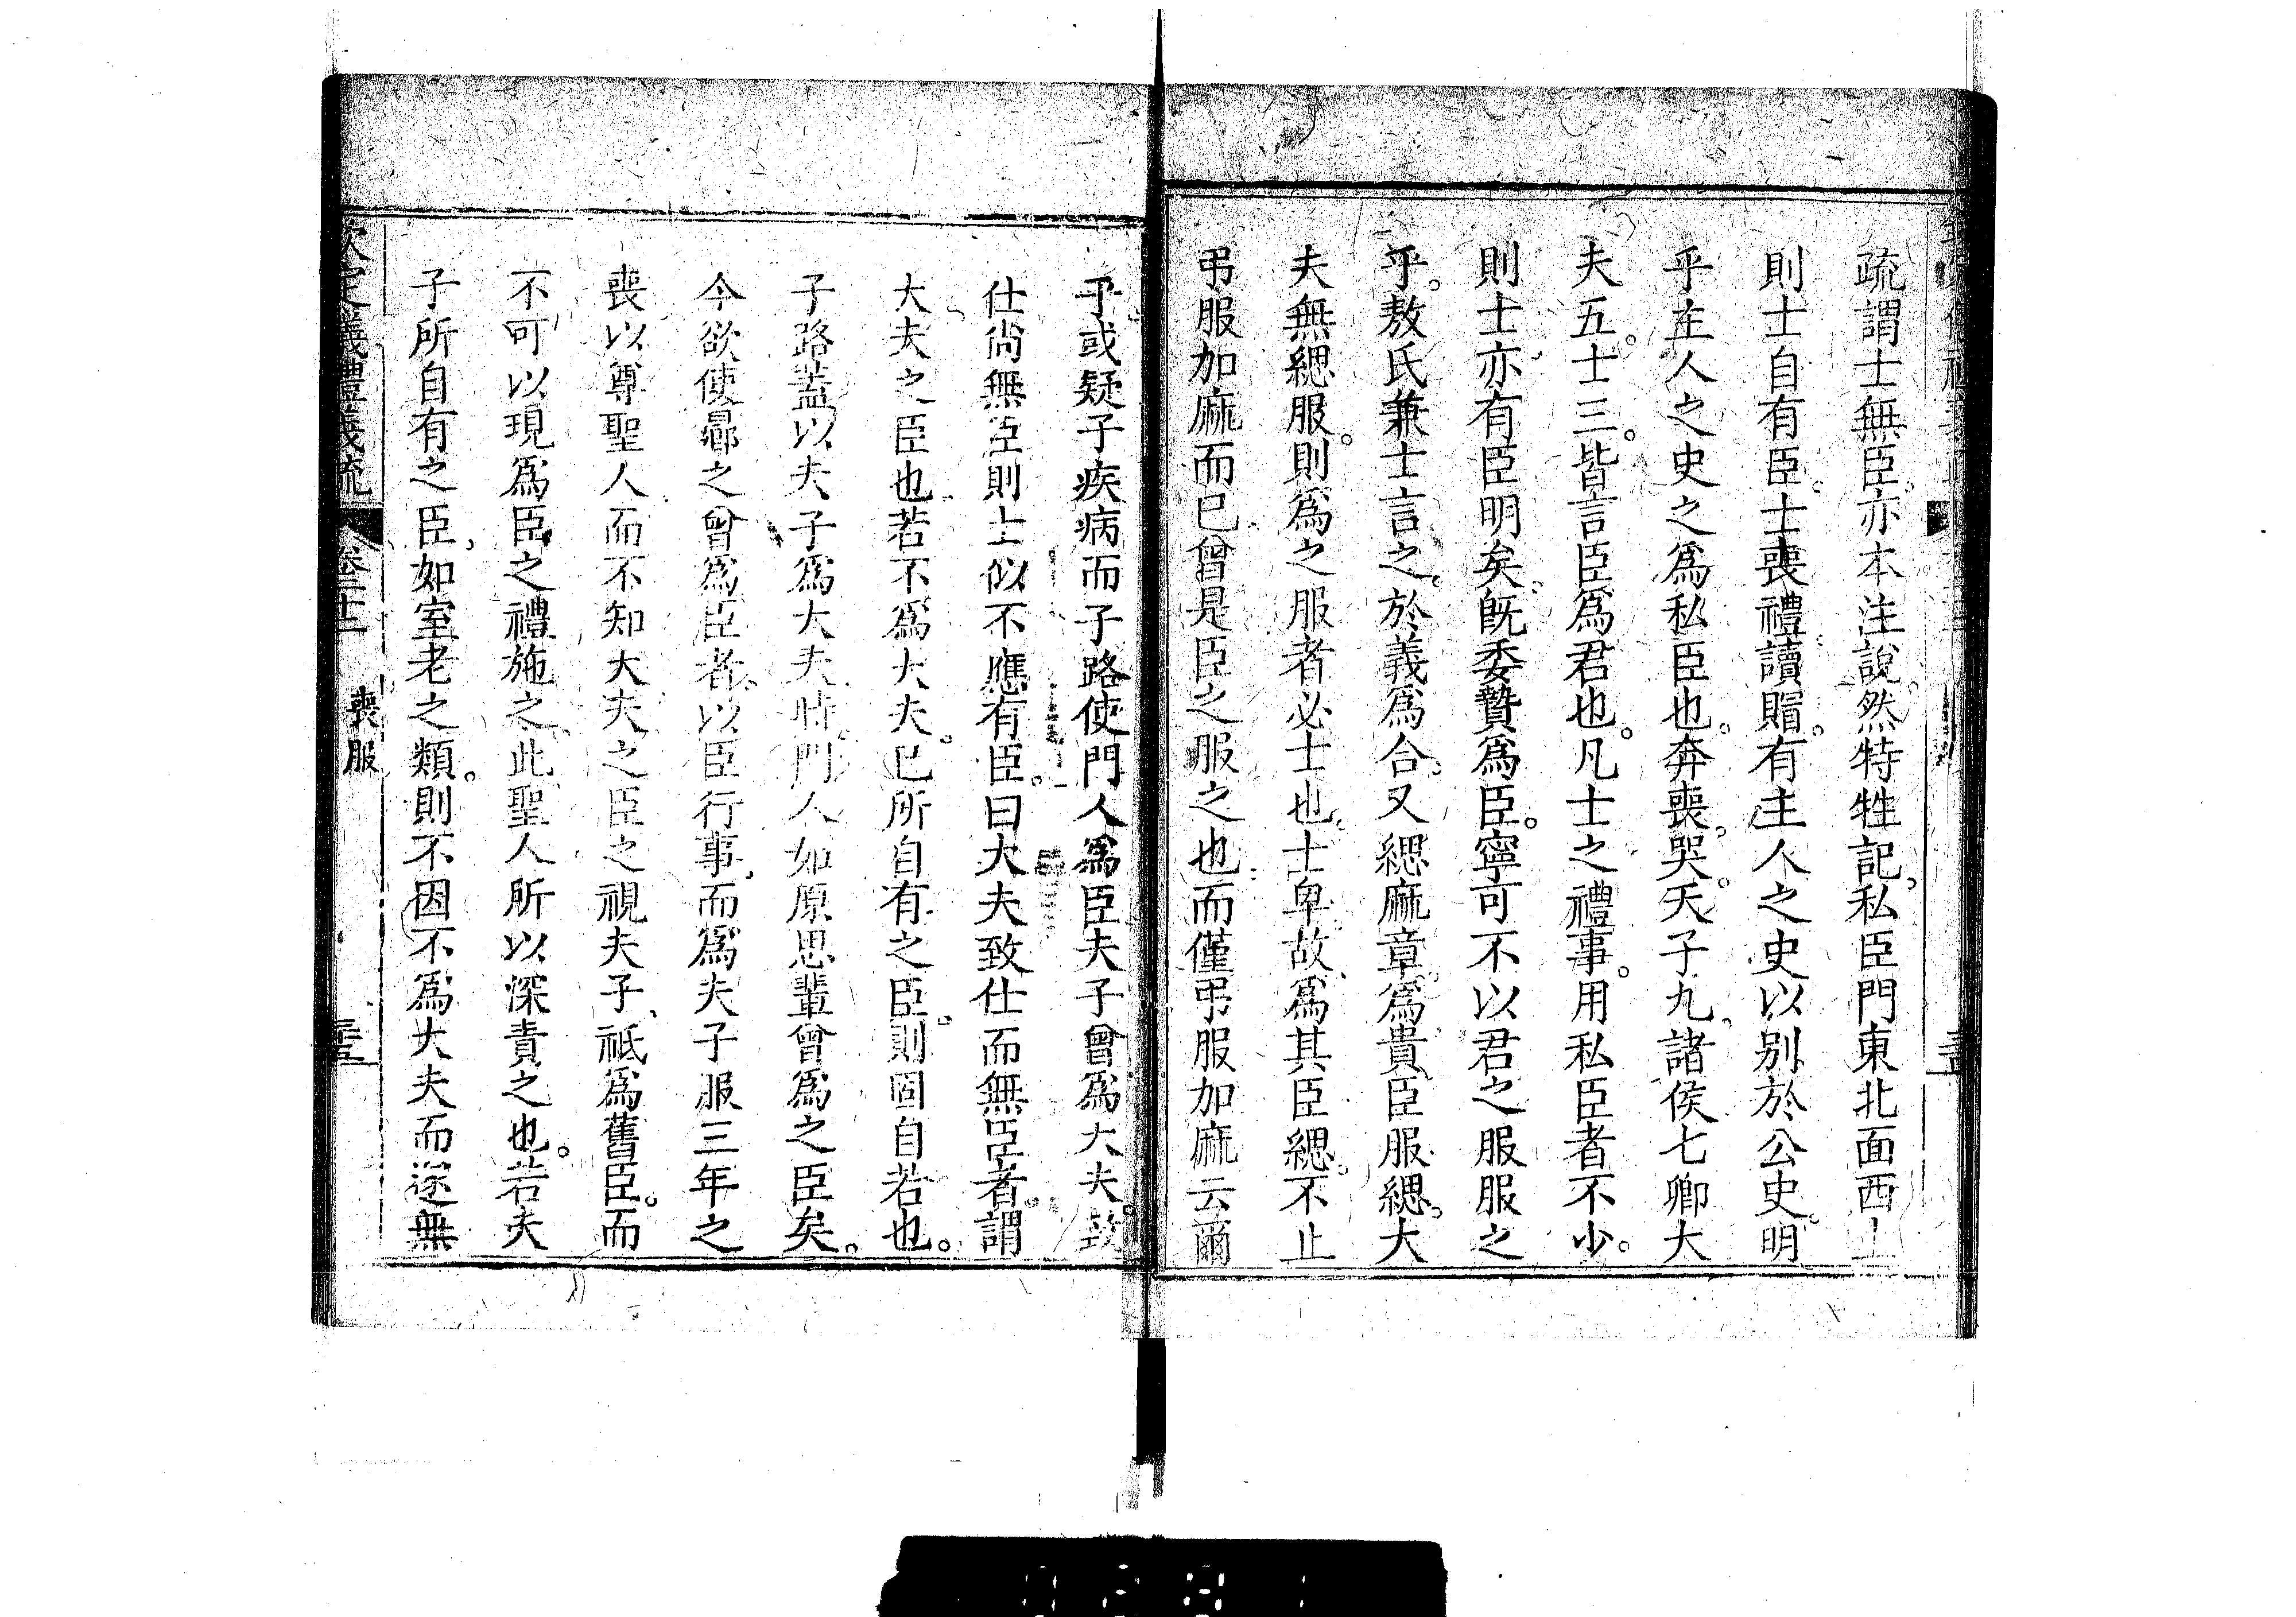 疏謂士無臣亦本注說然特牲記私臣門東北面西上
則士自有臣士喪禮讀賵有主人之史以別於公史明
乎主人之史之爲私臣也奔喪哭天子九諸侯七卿大
夫五士三皆言臣爲君也凡士之禮事用私臣者不少
則士亦有臣明矣旣委贄爲臣寧可不以君之服服之
乎敖氏兼士言之於義爲合又緦麻章爲貴臣服緦大
夫無緦服則爲之服者必士也士卑故爲其臣緦不止
弔服加麻而已曾是臣之服之也而僅弔服加麻云爾
乎或疑子疾病而子路使門人爲臣夫子曾爲大夫致
仕尙無臣則士似不應有臣曰大夫致仕而無臣者謂
大夫之臣也若不爲大夫已所自有之臣則固自若也
子路蓋以夫子爲大夫時門人如原思輩曾爲之臣矣
今欲使曏之曾爲臣者以臣行事而爲夫子服三年之
喪以尊聖人而不知大夫之臣之視夫子祗爲舊臣而
不可以現爲臣之禮施之此聖人所以深責之也若夫
子所自有之臣如室老之類則不因不爲大夫而遂無
欽定儀禮義疏 卷二十二 喪服